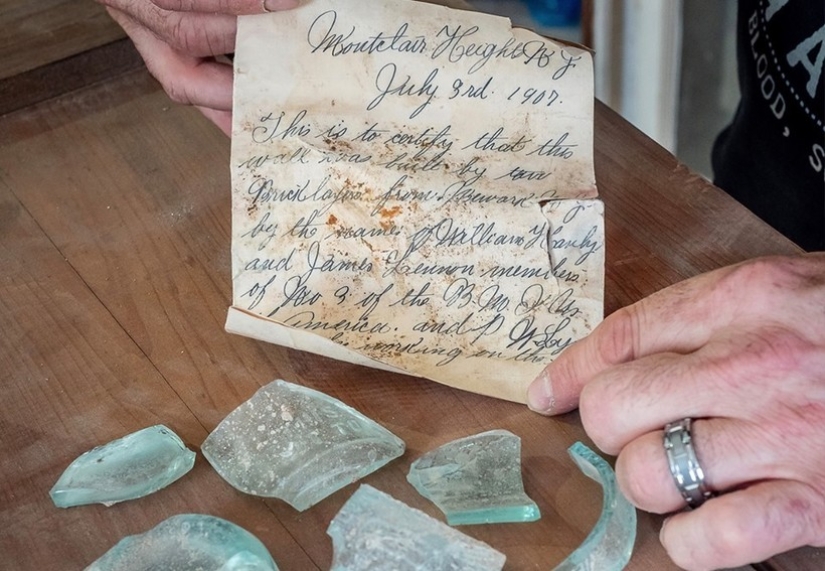 Montclair Heights N J.
July 3rd. 1907.
This is to certify that this
wall was built by two
Bricklayers from Newark N J.
by the names of William Hanly
and James Lennon members
of No 3 of the B M I U
America. and P
working on the
BLOOD, S